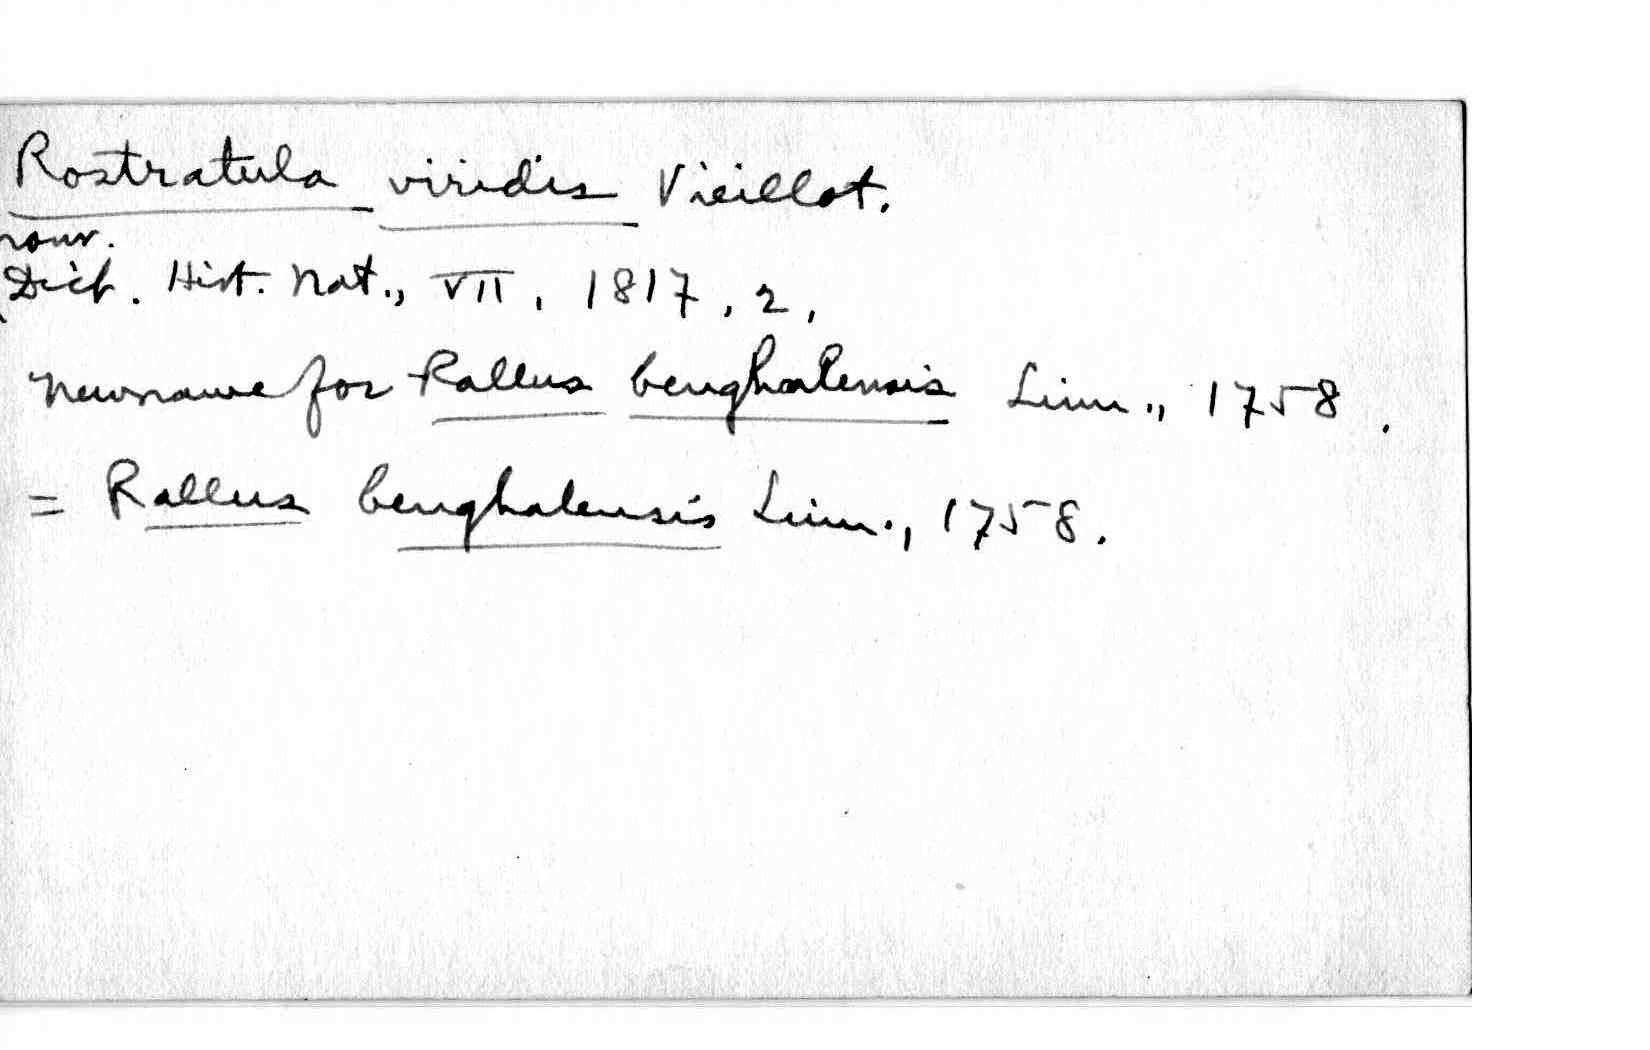 Rostratula viridis Vieillot.
nouv.
Dict. Hist. Nat., VII, 1817, 2,
new name for Rallus benghalensis Linn., 1758.
= Rallus benghalensis Linn., 1758.